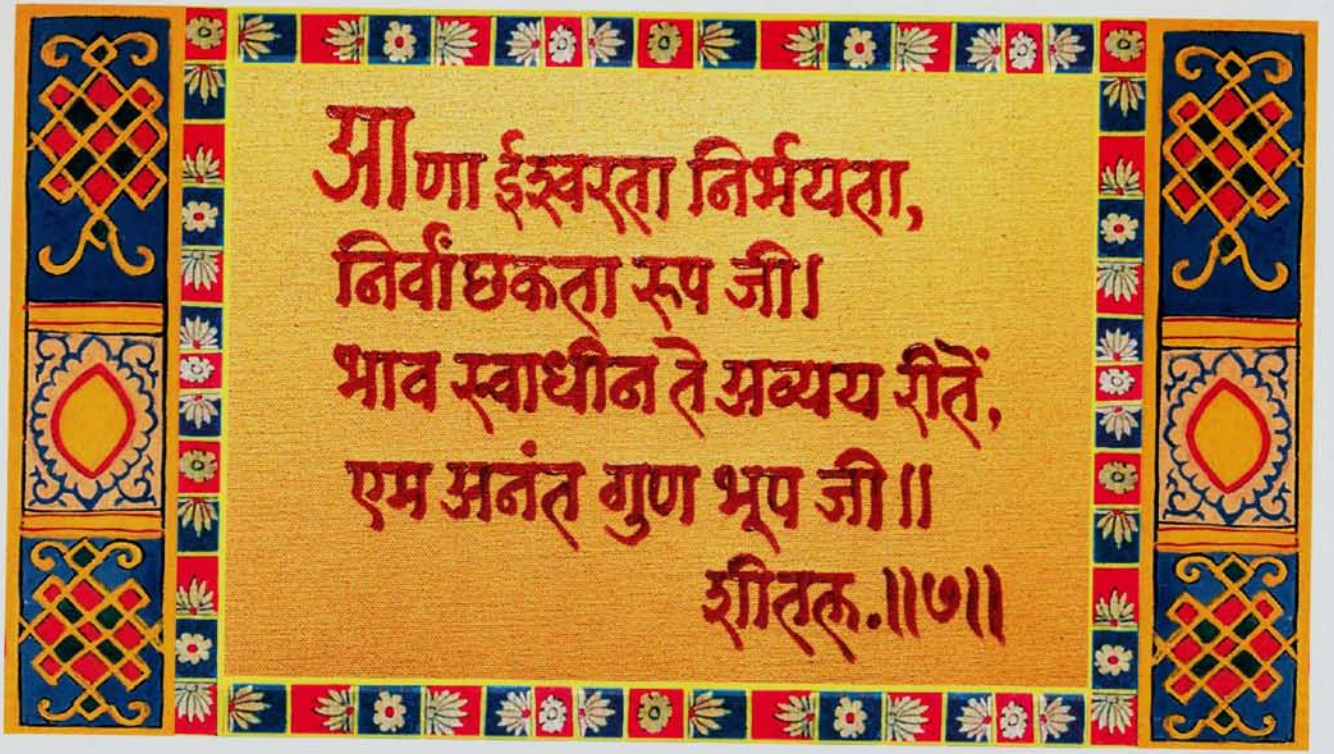 आणा ईश्वरता निर्भयता,
निर्वांछकता रूप जी।
भाव स्वाधीन ते अव्यय रीतें,
एम अनंत गुण भूप जी॥
शीतल.॥७॥